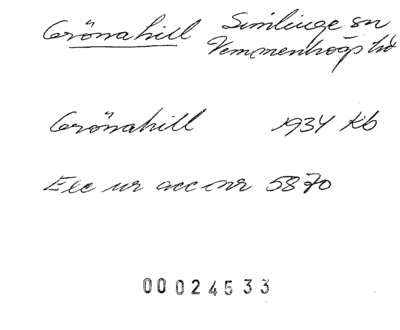 Grönahill Simlinge sn
Vemmenhögs hd
Grönahill 1934 Kb
Exc ur acc nr 5870
00024533